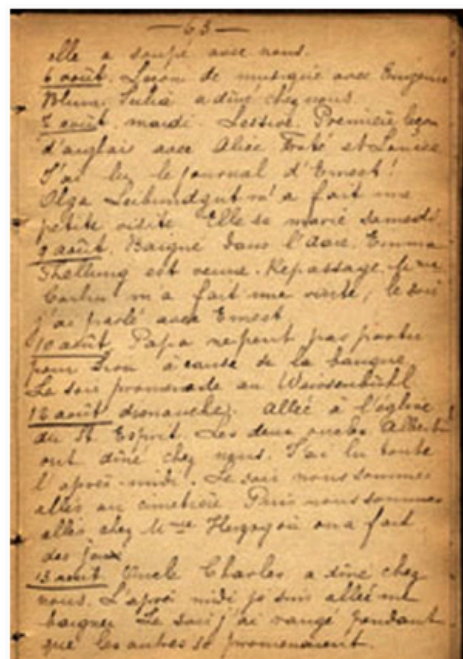 — 63 —
elle a soupé avec nous.
6 août. Leçon de musique avec Eugénie
Blum. Julia a dîné chez nous
7 août. mardi. Lessive. Première leçon
d'anglais avec Alice et Louise
J'ai lu le journal d'Ernest!
Olga m'a fait une
petite visite Elle se marie samedi.
9 août. Baigné dans l'Aare. Emma
est venue. Repassage. Mme
m'a fait une visite, le soir
j'ai parlé avec Ernest
10 août. Papa ne peut pas partir
pour à cause de la banque
Le soir promenade au
12 août dimanche. Allée à l'église
du St. Esprit. Les deux oncles Albert
ont dîné chez nous. J'ai lu toute
l'après-midi. Le soir nous sommes
allés au cimetière Puis nous sommes
allés chez Mme Herzog où on a fait
des jeux
13 août Oncle Charles a dîné chez
nous. L'après midi je suis allée me
baigner Le soir j'ai rangé pendant
que les autres se promenaient.